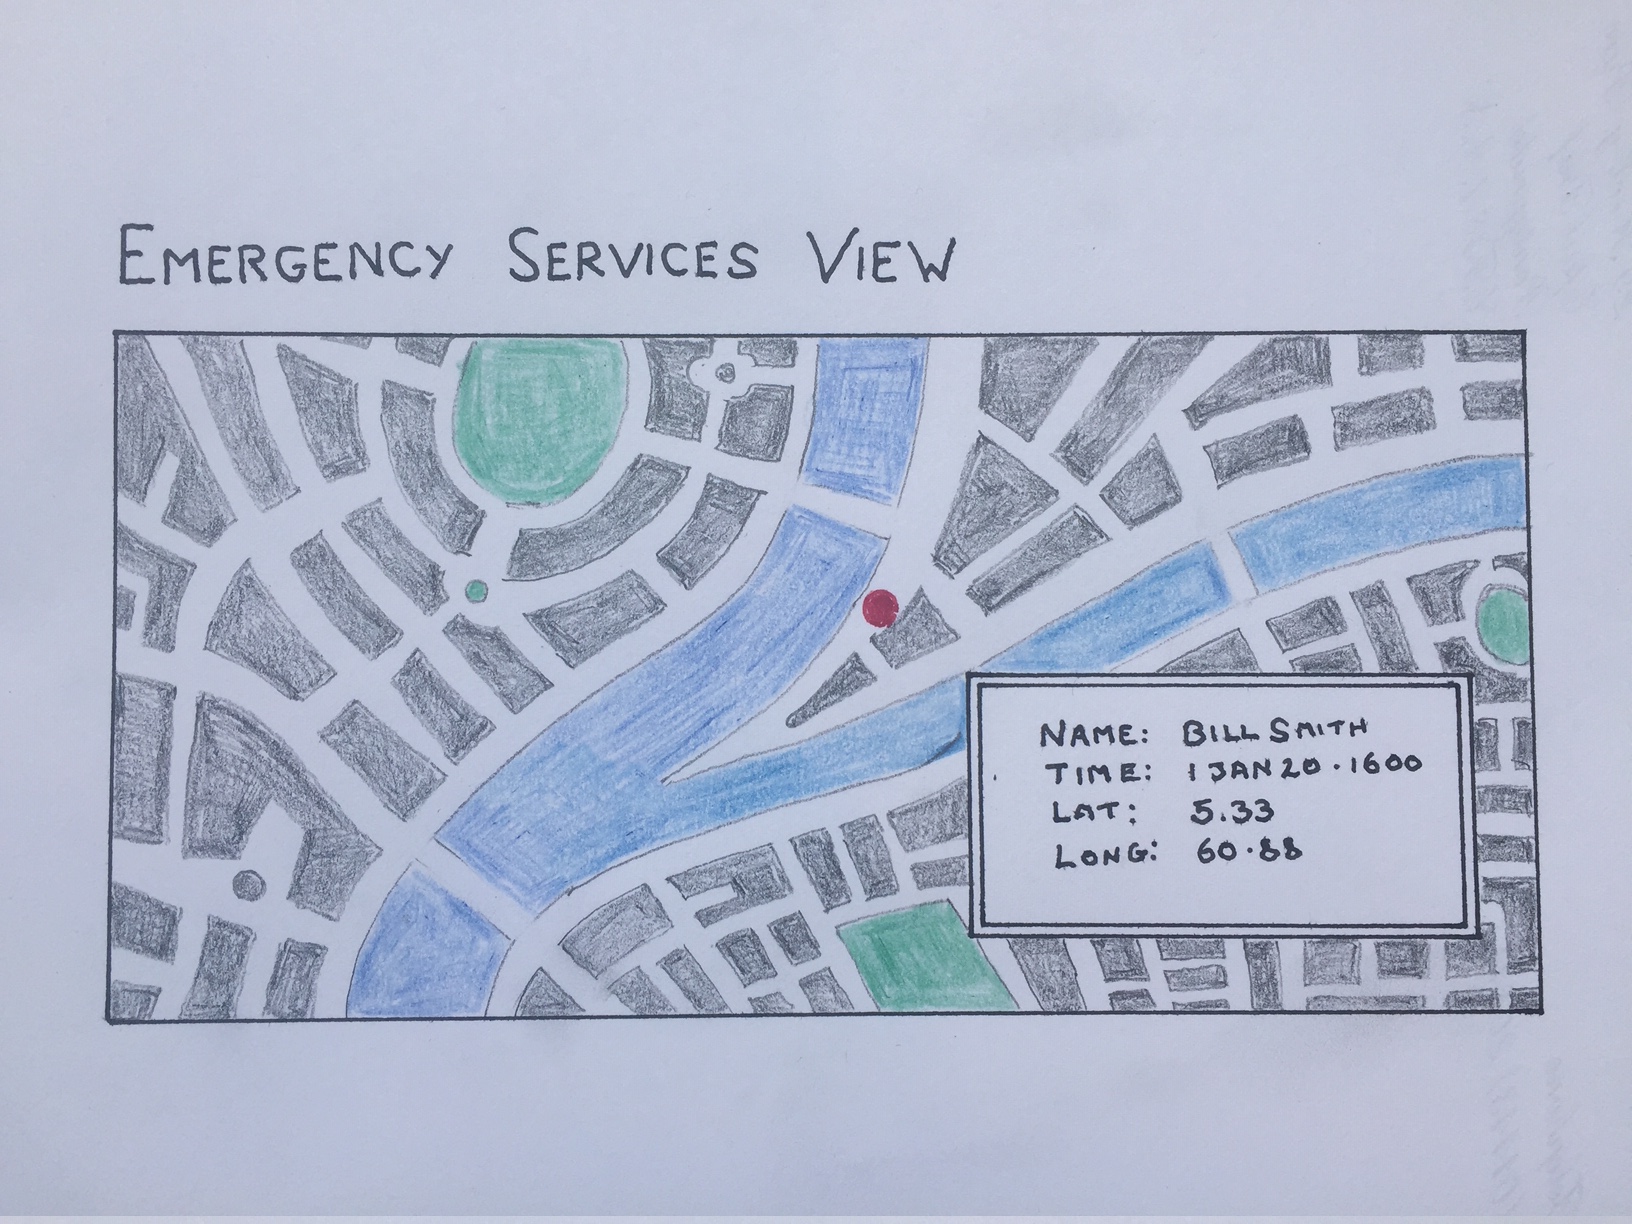 EMERGENCY SERVICES VIEW
NAME: BILL SMITH
TIME: 1 JAN 20 · 1600
LAT: 5.33
LONG: 60.88